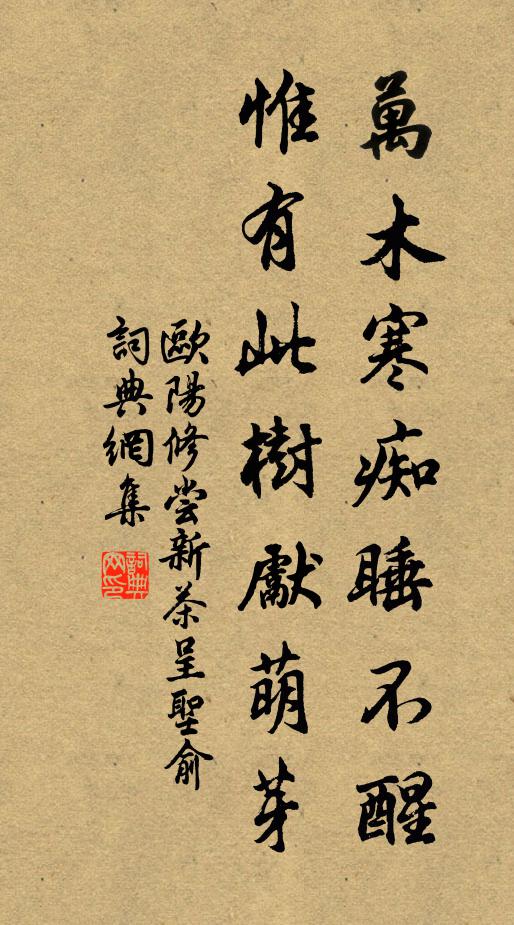 萬木寒痴睡不醒
惟有此樹獻萌芽
歐陽修嘗新茶呈聖俞
詞典網集
詞典
网印